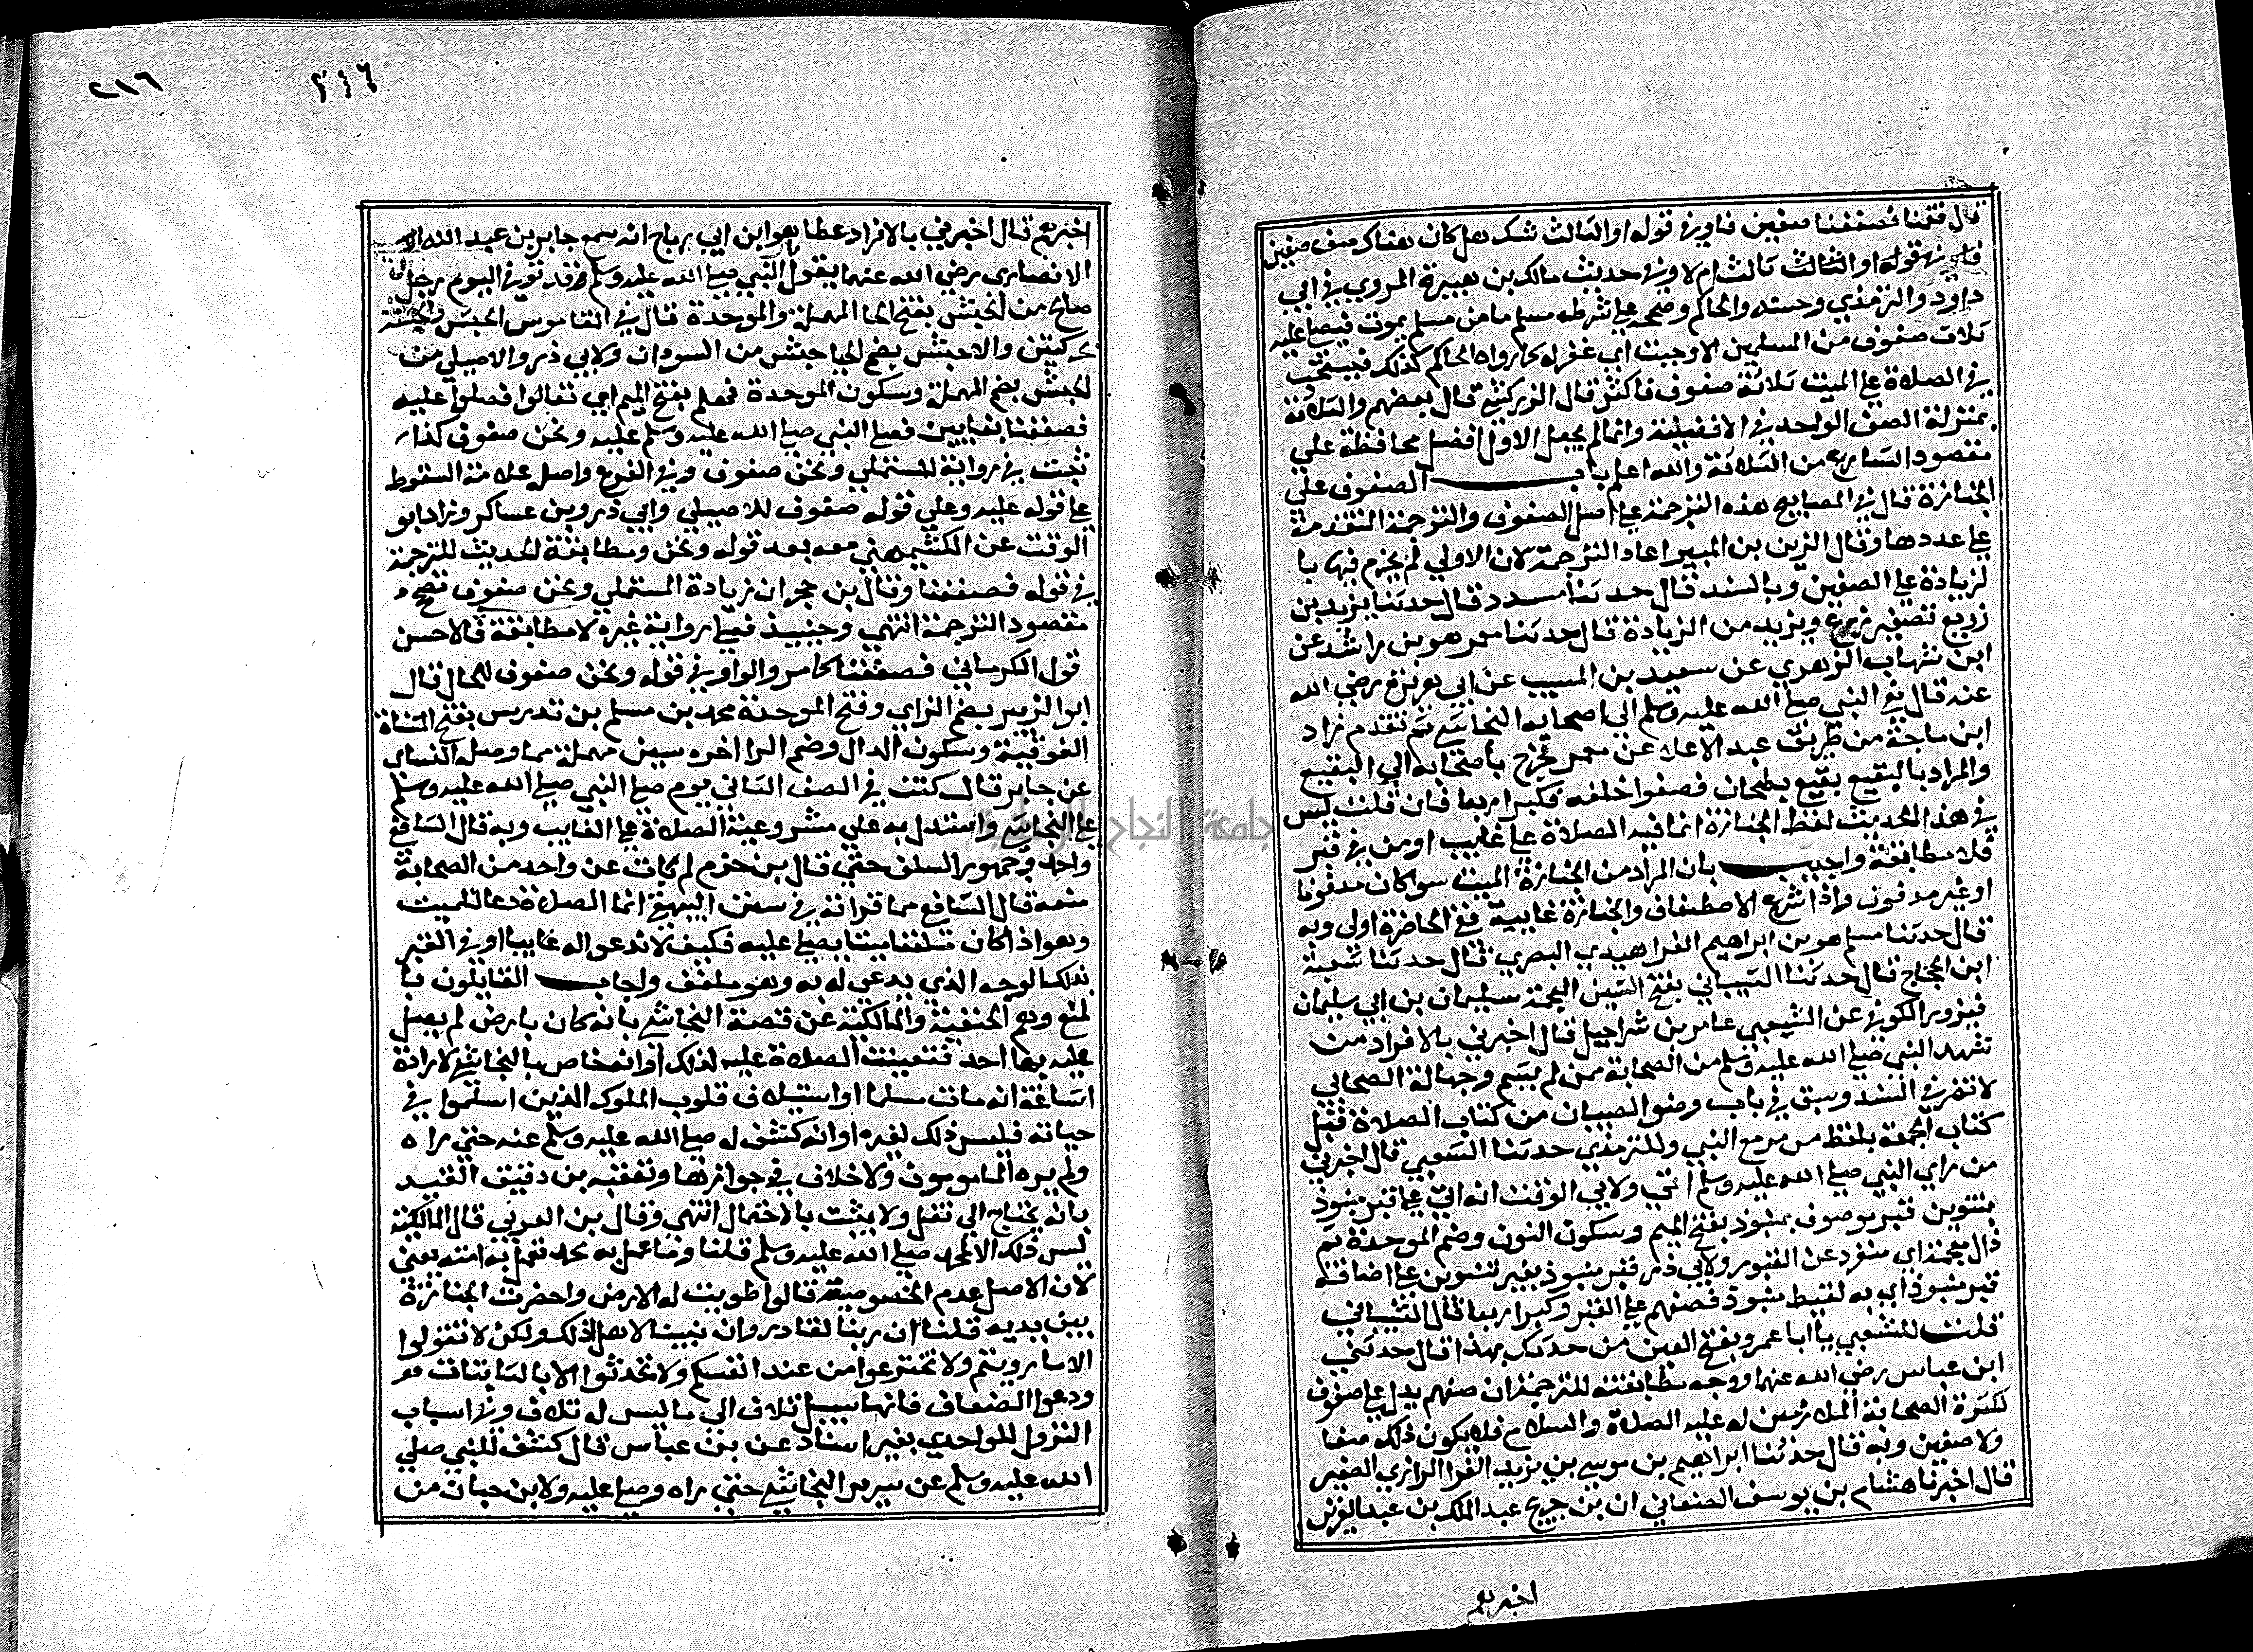 قال فقمنا فصففنا صفين فاو في قوله او الثالث شك هل كان هناك صف صفين
فا في قوله او الثالث ثالث ام لا وفي حديث مالك بن هبيرة المروي في ابي
داود والترمذي وحسنه والحاكم وصححه علي شرط مسلم ما من مسلم يموت فيصلي عليه
ثلاث صفوف من المسلمين الا وجبت اي غفر له كما رواه الحاكم كذلك فيستحب
في الصلاة علي الميت ثلاثة صفوف فاكثر قال الزركشي قال بعضهم والثلاثة
بمنزلة الصف الواحد في الافضلية وانما لم يجعل الاول افضل محافظة علي
مقصود الشارع من الثلاثة والله اعلم باب الصفوف علي
الجنازة قال في المصابيح هذه الترجمة علي اصل الصفوف والترجمة المتقدمة
علي عددها وقال الزين بن المنير اعاد الترجمة لان الاولي لم يجزم فيها با
لزيادة علي الصفين وبالسند قال حدثنا مسدد قال حدثنا يزيد بن
زريع تصغير زرع ويزيد من الزيادة قال حدثنا معمر هو بن راشد عن
ابن شهاب الزهري عن سعيد بن المسيب عن ابي هريرة رضي الله
عنه قال نعي النبي صلي الله عليه وسلم الي اصحابه النجاشي ثم تقدم زاد
ابن ماجة من طريق عبد الاعلا عن معمر فخرج باصحابه الي البقيع
والمراد بالبقيع بقيع بطحان فصفوا خلفه فكبر اربعا فان قلت ليس
في هذا الحديث لفظ الجنازة انما فيه الصلاة علي غايب او من في قبر
فلا مطابقة واجيب بان المراد من الجنازة الميت سوا كان مدفونا
او غير مدفون واذا شرع الاصطفاف والجنازة غايبة ففي الحاضرة اولي وبه
قال حدثنا مسلم هو بن ابراهيم الفراهيدي البصري قال حدثنا شعبة
ابن الحجاج قال حدثنا الشيباني بفتح الشين المعجمة سليمان بن ابي سليمان
فيروز الكوفي عن الشعبي عامر بن شراحيل قال اخبرني بالافراد من
شهد النبي صلي الله عليه وسلم من الصحابة ممن لم يسم وجهالة الصحابي
لا تضر في السند وسبق في باب وضو الصبيان من كتاب الصلاة قبل
كتاب الجمعة بلفظ من مر مع النبي وللترمذي حدثنا الشعبي قال اخبرني
من راي النبي صلي الله عليه وسلم اتي ولابي الوقت انه اتي علي قبر منبوذ
بتنوين قبر موصوف بمنبوذ بفتح الميم وسكون النون وضم الموحدة ثم
ذال معجمة اي منفرد عن القبور ولابي ذر قبر منبوذ بغير تنوين علي اضافة
قبر منبوذ اي به لقيط منبوذ فصفهم علي القبر وكبر اربعا قال الشيباني
قلت للشعبي يا ابا عمرو بفتح العين من حدثك بهذا قال حدثني
ابن عباس رضي الله عنهما ووجه مطابقته للترجمة ان صفهم يدل علي صفوف
لكثرة الصحابة الملازمين له عليه الصلاة والسلام فلا يكون ذلك صفا
ولا صفين وبه قال حدثنا ابراهيم بن موسي بن يزيد الفرا الرازي الصغير
قال اخبرنا هشام بن يوسف الصنعاني ان بن جريج عبد الملك بن عبد العزيز
اخبرهم
٢١٦
٢١٦
اخبرهم قال اخبرني بالافراد عطا هو ابن ابي رباح انه سمع جابر بن عبد الله
الانصاري رضي الله عنهما يقول النبي صلي الله عليه وسلم قد توفي اليوم رجل
صالح من الحبش بفتح الحا المهملة والموحدة قال في القاموس الحبش والحبشة
محركتين والاحبش بضم البا جنس من السودان ولابي ذر والاصيلي من
الحبش بضم المهملة وسكون الموحدة فهلم بفتح الميم اي تعالوا فصلوا عليه
فصففنا بغايين فصلي النبي صلي الله عليه وسلم عليه ونحن صفوف كذا
ثبت في رواية المستملي ونحن صفوف وفي الفرع واصله علامة السقوط
علي قوله عليه وعلي قوله صفوف للاصيلي وابي ذر وبن عساكر وزاد ابو
الوقت عن الكشميهني معه بعد قوله ونحن ومطابقة الحديث للترجمة
في قوله فصففنا وقال بن حجر ان زيادة المستملي ونحن صفوف تصحح
مقصود الترجمة انتهي وحينيذ فعلي رواية غيره لا مطابقة فالاحسن
قول الكرماني فصففنا كما مر والواو في قوله ونحن صفوف للحال قال
ابو الزبير بضم الزاي وفتح الموحدة محمد بن مسلم بن تدرس بفتح المثناة
الفوقية وسكون الدال وضم الرا اخره سين مهملة مما وصله النساي
عن جابر قال كنت في الصف الثاني يوم صلي النبي صلي الله عليه وسلم
علي النجاشي واستدل به علي مشروعية الصلاة علي الغايب وبه قال الشافعي
واحمد وجمهور السلف حتي قال بن حزم لم يات عن واحد من الصحابة
منعه قال الشافعي مما قراته في سنن البيهقي انما الصلاة دعا للميت
وهو اذا كان ملففا ميتا يصلي عليه فكيف لا ندعو اله غايبا او في القبر
بذلك الوجه الذي يدعي له به وهو ملفف واجاب القايلون با
لمنع وهم الحنفية والمالكية عن قصة النجاشي بانه كان بارض لم يصل
عليه بها احد فتعينت الصلاة عليه لذلك او انه خاص بالنجاشي لارادة
اشاعة انه مات مسلما او استيلاف قلوب الملوك الذين اسلموا في
حياته فليس ذلك لغيره او انه كشف له صلي الله عليه وسلم عنه حتي راه
ولم يره المامومون ولا خلاف في جوازها وتعقبه بن دقيق العيد
بانه يحتاج الي نقل ولا يثبت بالاحتمال انتهي وقال بن العربي قال المالكية
ليس ذلك الا لمحمد صلي الله عليه وسلم قلنا وما عمل به محمد تعمل به امته يعني
لان الاصل عدم الخصوصية قالوا طويت له الارض واحضرت الجنازة
بين يديه قلنا ان ربنا لقادر وان نبينا لاهل لذلك ولكن لا تقولوا
الا ما رويتم ولا تخترعوا من عند انفسكم ولا تحدثوا الا بالثابتات
ودعوا الضعاف فانها سبيل تلاف الي ما ليس له تلاف وفي اسباب
النزول للواحدي بغير اسناد عن بن عباس قال كشف للنبي صلي
الله عليه وسلم عن سرير النجاشي حتي راه وصلي عليه ولابن حبان من
جامعة النجاح الوطنية